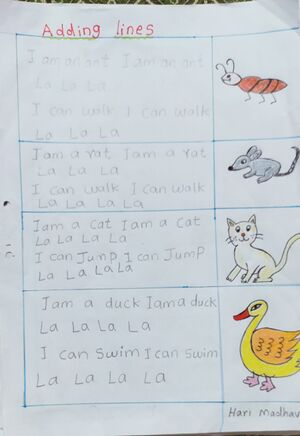 Adding lines
I am an ant I am an ant
La La La
I can walk I can walk
La La La
I am a rat I am a rat
La La La
I can walk I can walk
La La La La
I am a cat I am a cat
La La La La
I can Jump I can Jump
La La La La
I am a duck I am a duck
La La La La
I can swim I can swim
La La La La
Hari Madhav